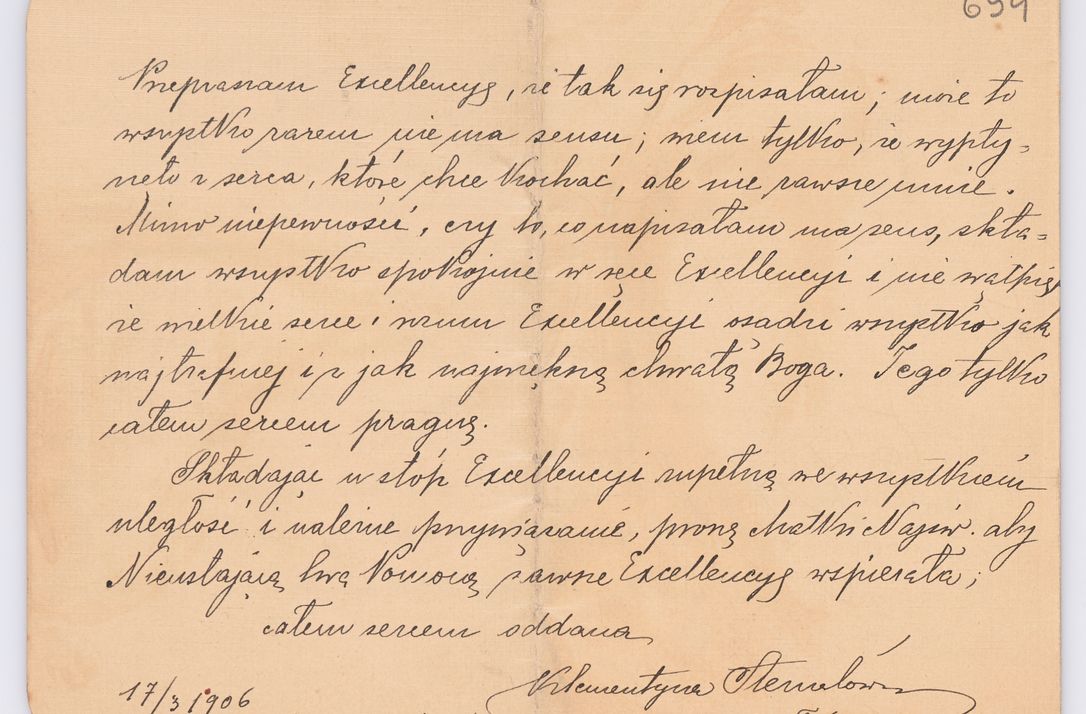 659
Przepraszam Excellencyę, że tak się rozpisałam; może to
wszystko razem nie ma sensu; wiem tylko, że wypły=
nęło z serca, które chce kochać, ale nie zawsze umie.
Mimo niepewności, czy to, co napisałam ma sens, skła=
dam wszystko spokojnie w ręce Excellencyi i nie wątpię,
że wielkie serce i rozum Excellencyi osądzi wszystko jak
najtrafniej i z jak największą chwałą Boga. Tego tylko
całem sercem pragnę.
Składając u stóp Excellencyi zupełną we wszystkiem
uległość i należne przywiązanie, proszę Matki Najśw. aby
Nieustającą swą Pomocą zawsze Excellencyę wspierała;
całem sercem oddana
Klementyna
17/3 1906